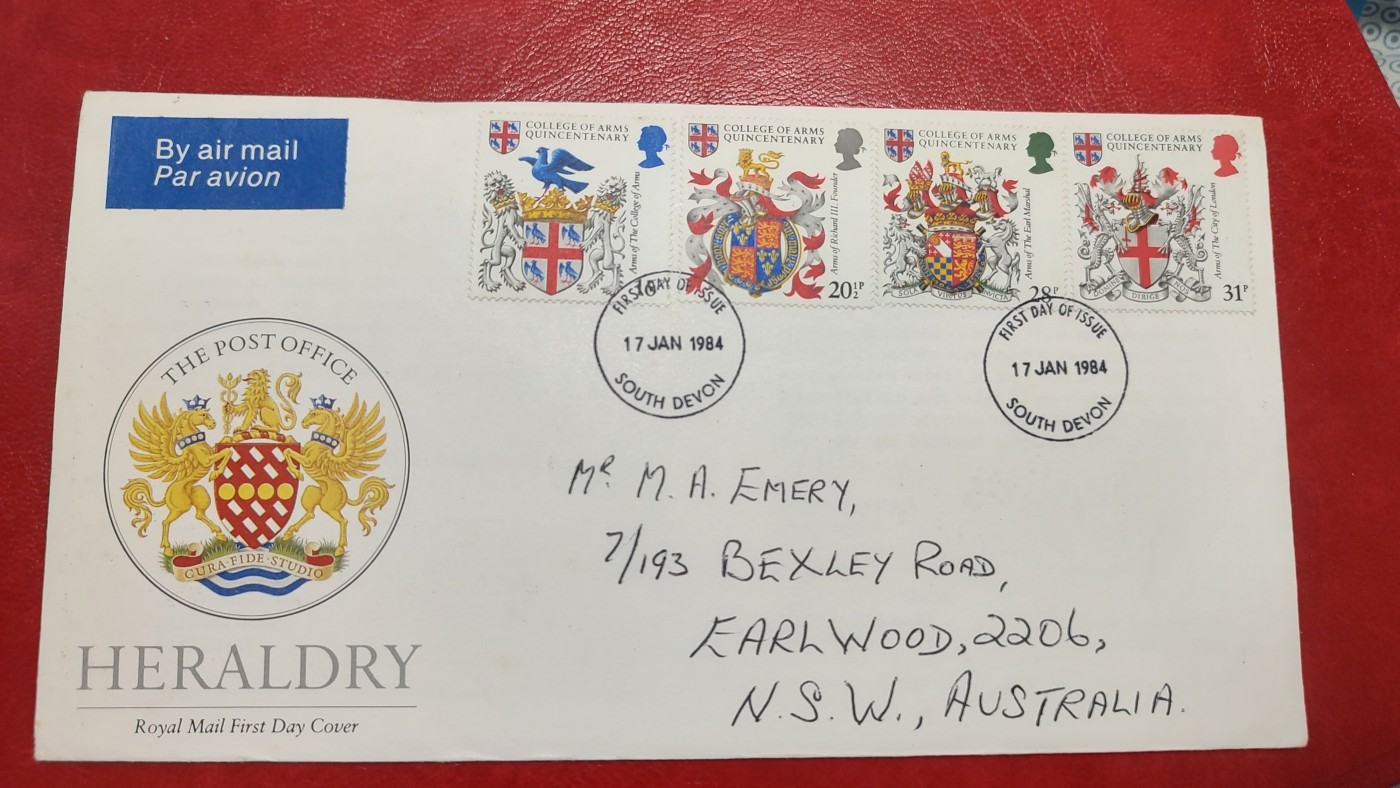 By air mail
Par avion
COLLEGE OF ARMS
QUINCENTENARY
Arms of The College of Arms
16
COLLEGE OF ARMS
QUINCENTENARY
Arms of Richard III. Founder
20½P
COLLEGE OF ARMS
QUINCENTENARY
Arms of The Earl Marshal
SOLA VIRTUS INVICTA
28P
COLLEGE OF ARMS
QUINCENTENARY
Arms of The City of London
DOMINE DIRIGE NOS
31P
FIRST DAY OF ISSUE
17 JAN 1984
SOUTH DEVON
FIRST DAY OF ISSUE
17 JAN 1984
SOUTH DEVON
THE POST OFFICE
CURA·FIDE·STUDIO
HERALDRY
Royal Mail First Day Cover
Mr. M. A. EMERY,
7/193 BEXLEY ROAD,
EARLWOOD, 2206,
N.S.W., AUSTRALIA.